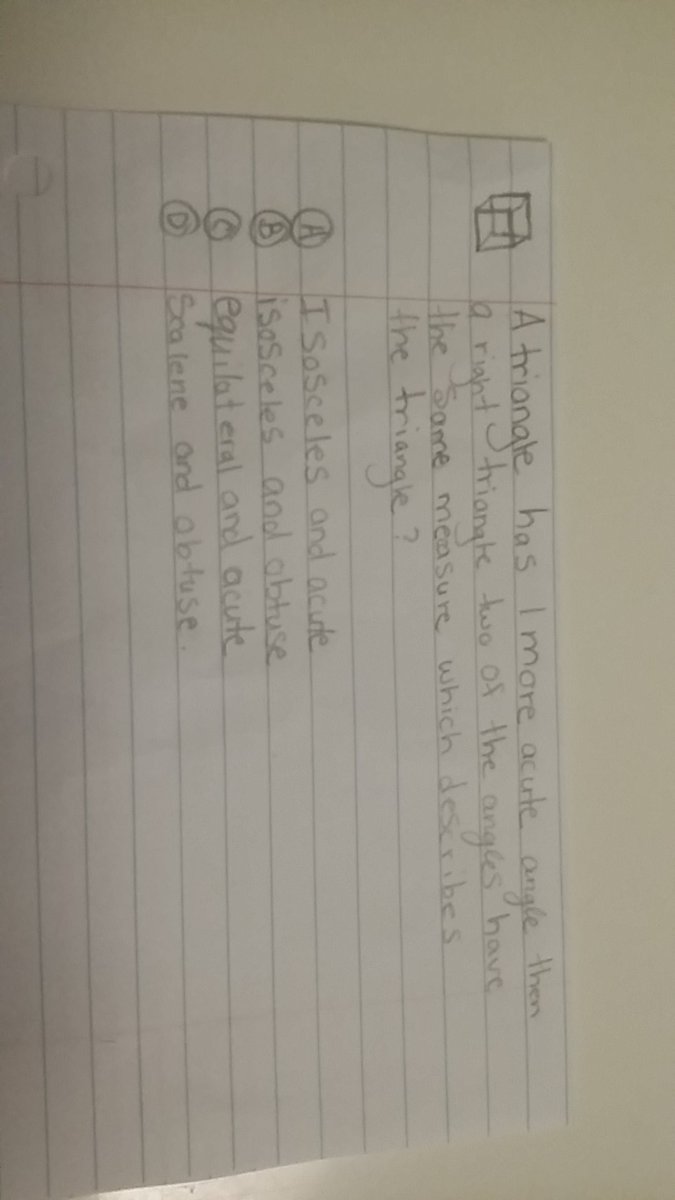 A triangle has 1 more acute angle then
a right triangle two of the angles have
the same measure which describes
the triangle?
A Isosceles and acute
B isosceles and obtuse
C equilateral and acute
D Scalene and obtuse.